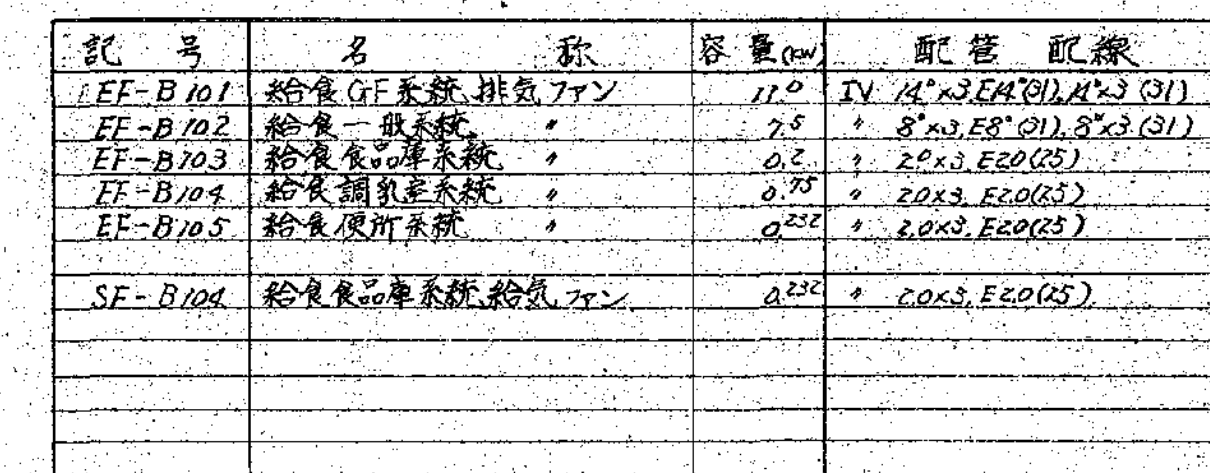 記 号 名 称 容 量(KW) 配 管 配 線
EF-B101 給食GF系統排気ファン 11.0 IV 14°×3,E14°(31),14°×3(31)
EF-B102 給食一般系統 〃 7.5 〃 8°×3,E8°(31),8°×3(31)
EF-B103 給食食品庫系統 〃 0.2 〃 2.0×3,E2.0(25)
EF-B104 給食調乳室系統 〃 0.75 〃 2.0×3,E2.0(25)
EF-B105 給食便所系統 〃 0.232 〃 2.0×3,E2.0(25)
SF-B104 給食食品庫系統給気ファン 0.232 〃 2.0×3,E2.0(25)